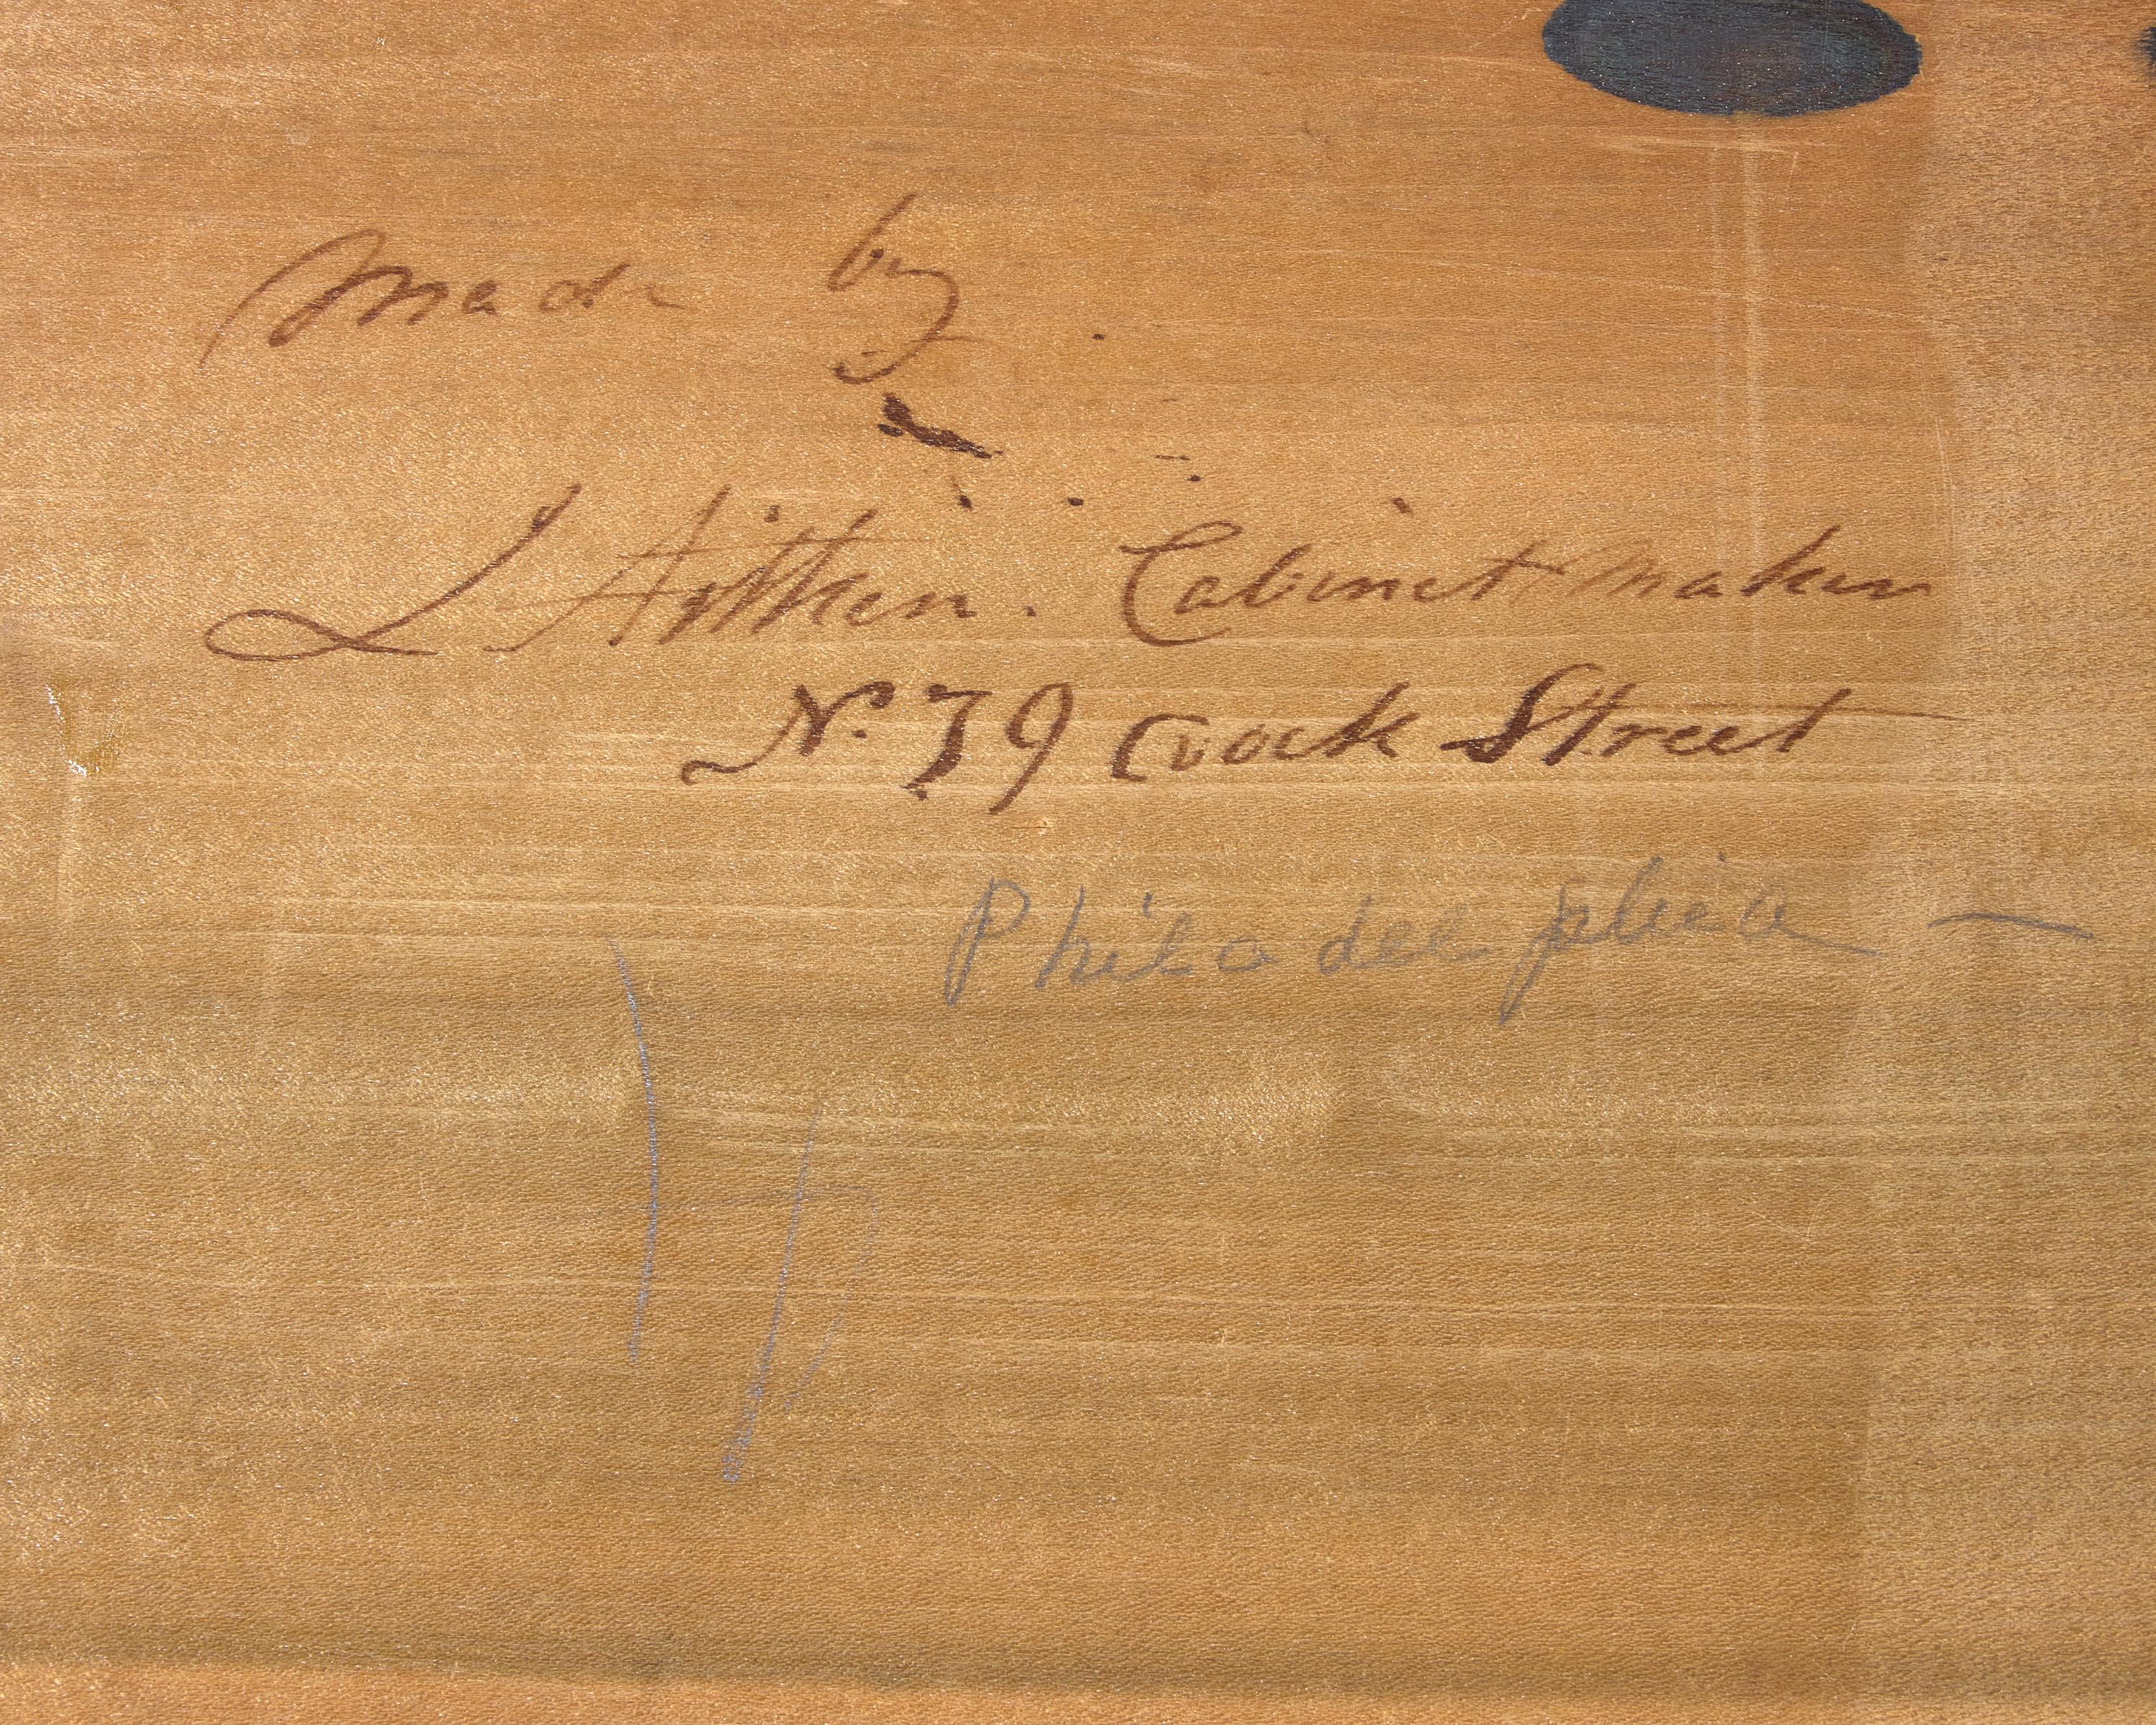 Made by
J Aitken. Cabinet Maker
N. 79 Dock Street
Philadelphia —